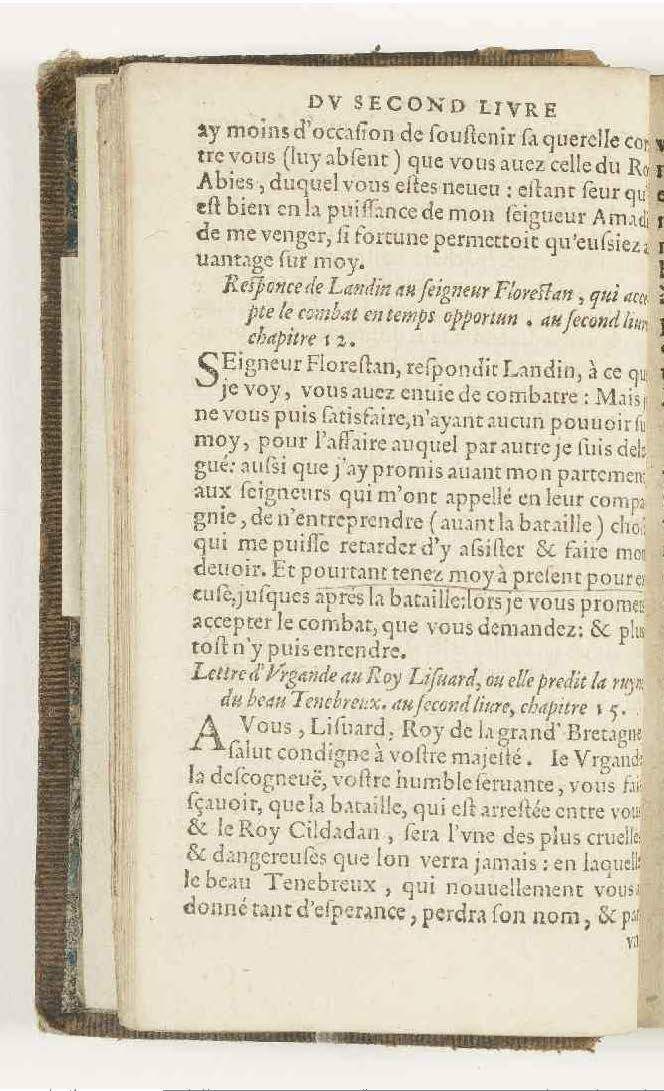 DV SECOND LIVRE
ay moins d'occaſion de ſouſtenir ſa querelle con
tre vous (luy abſent) que vous auez celle du Ro
Abies, duquel vous eſtes neueu : eſtant ſeur qu
eſt bien en la puiſſance de mon ſeigueur Amadi
de me venger, ſi fortune permettoit qu'euſsiez a
uantage ſur moy.
Reſponce de Landin au ſeigneur Floreſtan, qui acce
pte le combat en temps opportun . au ſecond liure
chapitre 12.
SEigneur Floreſtan, reſpondit Landin, à ce qu
je voy, vous auez enuie de combatre : Mais j
ne vous puis ſatisfaire, n'ayant aucun pouuoir ſu
moy, pour l'affaire auquel par autre je ſuis dele
gué: auſsi que j'ay promis auant mon partement
aux ſeigneurs qui m'ont appellé en leur compa
gnie, de n'entreprendre (auant la bataille) choſ
qui me puiſſe retarder d'y aſsiſter & faire mon
deuoir. Et pourtant tenez moy à preſent pour ex
cuſé, juſques aprés la bataille: lors je vous promets
accepter le combat, que vous demandez: & plus
toſt n'y puis entendre.
Lettre d'Vrgande au Roy Liſuard, ou elle predit la ruyn
du beau Tenebreux. au ſecond liure, chapitre 15.
A Vous, Liſuard, Roy de la grand' Bretagne
ſalut condigne à voſtre majeſté. Ie Vrgande
la deſcogneuë, voſtre humble ſeruante, vous fais
ſçauoir, que la bataille, qui eſt arreſtée entre vous
& le Roy Cildadan, ſera l'vne des plus cruelles
& dangereuſes que lon verra jamais : en laquelle
le beau Tenebreux, qui nouuellement vous a
donné tant d'eſperance, perdra ſon nom, & par